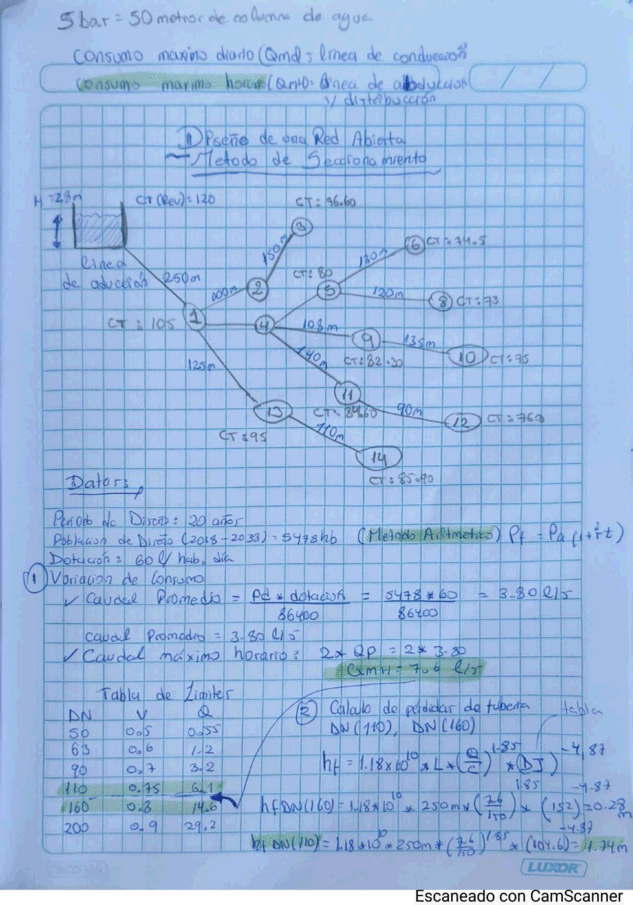 5 bar = 50 metros de columna de agua
Consumo maximo diario (Qmd) = linea de conducción
Consumo maximo horario (QMH) = Linea de aducción
y distribucción
1) Diseño de una Red Abierta
Metodo de Seccionamiento
H = 23m
CT (Rev) = 120
CT: 96.60
3
150m
6
CT: 74.5
130m
CT: 80
linea
de aducción
250m
2
5
120m
8
CT: 73
1
CT: 105
4
103m
9
135m
10
CT: 75
CT: 82.30
140m
125m
11
90m
12
13
110m
CT: 95
14
CT: 85.90
Datos:
Periodo de Diseño: 20 años
Poblacion de Diseño (2018-2038) = 5478hb (Metodo Aritmetico)
Dotación: 60 l/hab. dia
1 Variacion de Consumo
✓ Caudal Promedio = Pd * dotación / 86400 = 5478 * 60 / 86400 = 3.80 l/s
caudal Promedio = 3.80 l/s
✓ Caudal máximo horario: 2 * QP = 2 * 3.80
QMH = 7.6 l/s
Tabla de Limites
DN V Q
50 0.5 0.55
63 0.6 1.2
90 0.7 3.2
110 0.75 6.1
160 0.8 14.6
200 0.9 29.2
2 Calculo de perdidas de tuberia
DN (110), DN (160)
tabla
hf = 1.18x10^10 * L * (Q/C)^1.85 * (DI)^-4.87
hf DN(160) = 1.18*10^10 * 250m * (7.6/150)^1.85 * (152)^-4.87 = 0.28 m
hf DN(110) = 1.18*10^10 * 250m * (7.6/150)^1.85 * (104.6)^-4.87 = 1.74m
LUXOR
Escaneado con CamScanner